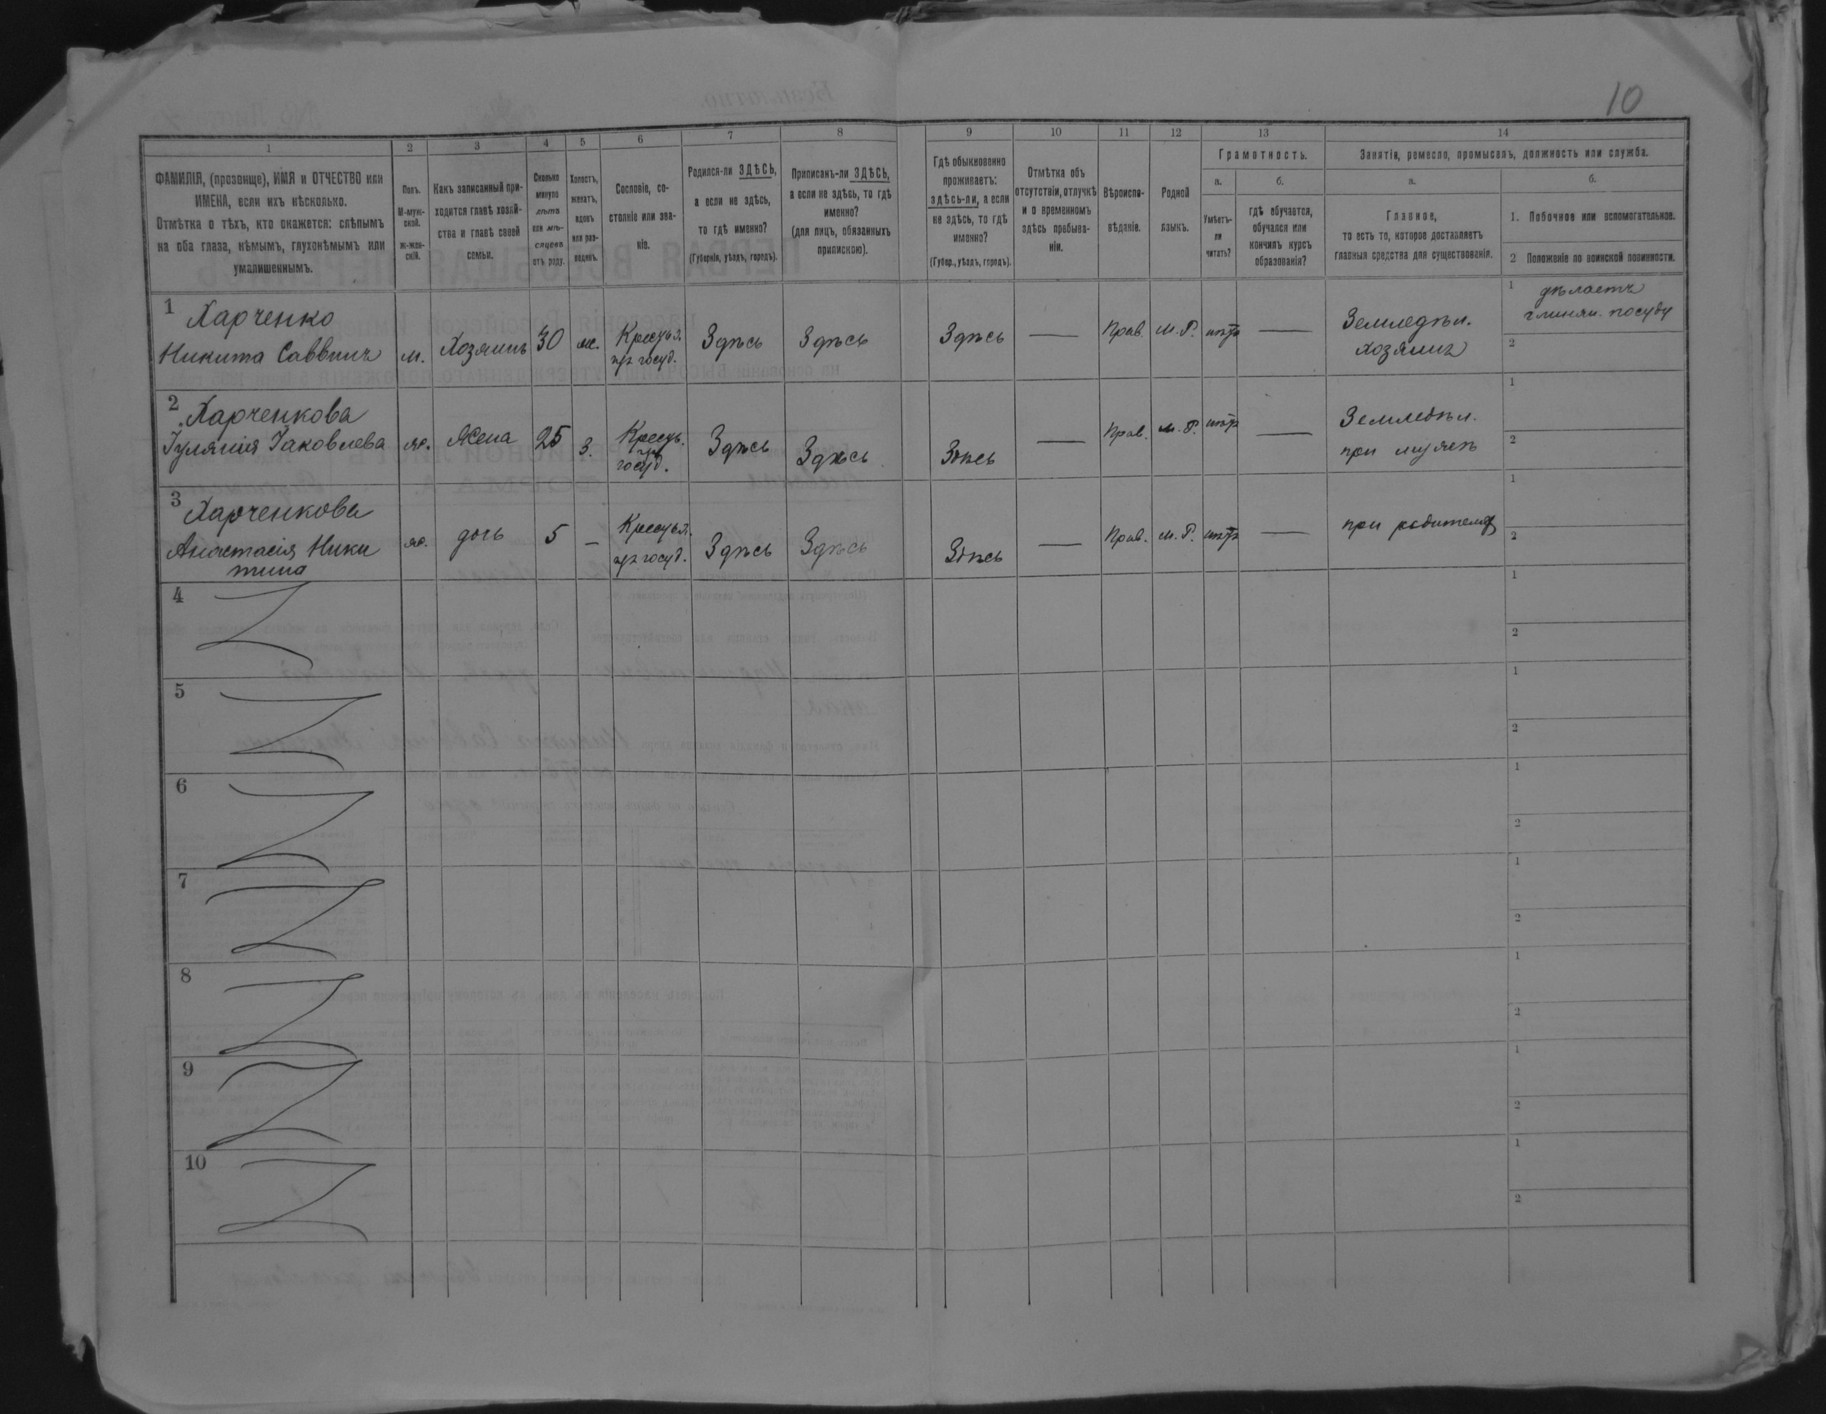 10
1 2 3 4 5 6 7 8 9 10 11 12 13 14
ФАМИЛІЯ, (прозвище), ИМЯ и ОТЧЕСТВО или
ИМЕНА, если ихъ нѣсколько.
Отмѣтка о тѣхъ, кто окажется: слѣпымъ
на оба глаза, нѣмымъ, глухонѣмымъ или
умалишеннымъ.
Полъ.
М-муж-
ской.
Ж-жен-
скій.
Какъ записанный при-
ходится главѣ хозяй-
ства и главѣ своей
семьи.
Сколько
минуло
лѣтъ
или мѣ-
сяцевъ
отъ роду.
Холостъ,
женатъ,
вдовъ
или раз-
веденъ.
Сословіе, со-
стояніе или зва-
ніе.
Родился-ли ЗДѢСЬ,
а если не здѣсь,
то гдѣ именно?
(Губернія, уѣздъ, городъ).
Приписанъ-ли ЗДѢСЬ,
а если не здѣсь, то гдѣ
именно?
(для лицъ, обязанныхъ
припискою).
Гдѣ обыкновенно
проживаетъ:
здѣсь-ли, а если
не здѣсь, то гдѣ
именно?
(Губер., уѣздъ, городъ).
Отмѣтка объ
отсутствіи, отлучкѣ
и о временномъ
здѣсь пребыва-
ніи.
Вѣроиспо-
вѣданіе.
Родной
языкъ.
Грамотность.
а.
б.
Умѣетъ-
ли
читать?
гдѣ обучается,
обучался или
кончилъ курсъ
образованія?
Занятіе, ремесло, промыселъ, должность или служба.
а.
б.
Главное,
то есть то, которое доставляетъ
главныя средства для существованія.
1. Побочное или вспомогательное.
2 Положеніе по воинской повинности.
1 Харченко
Никита Саввич
м.
Хозяинъ
30
Крестья.
изъ госуд.
Здѣсь
Здѣсь
Здѣсь
—
Прав.
М. Р.
нѣтъ
—
Земледѣл.
хозяинъ
1 дѣлаетъ
глинян. посуду
2
2 Харченкова
Іулянія Іаковлева
ж.
Жена
25
з.
Крестья.
изъ
госуд.
Здѣсь
Здѣсь
Здѣсь
—
Прав.
М. Р.
нѣтъ
—
Земледѣл.
при мужѣ
1
2
3 Харченкова
Анастасія Ники
тина
ж.
дочь
5
—
Крестья.
изъ госуд.
Здѣсь
Здѣсь
Здѣсь
—
Прав.
М. Р.
нѣтъ
—
при родителяхъ
1
2
4
1
2
5
1
2
6
1
2
7
1
2
8
1
2
9
1
2
10
1
2